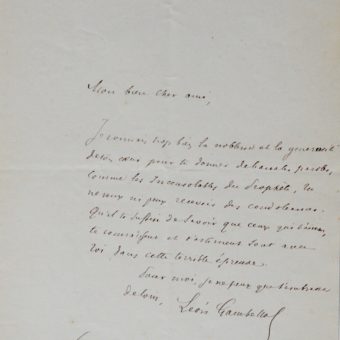 Mon bien cher ami,
Je connais trop bien la noblesse et la générosité
de ton cœur pour te donner de banales paroles,
comme les Inconsolables du Prophète, tu
ne veux ni peux recevoir des condoléances.
Qu'il te suffise de savoir que ceux qui t'aiment,
te connaissent et t'estiment sont avec
toi dans cette terrible épreuve.
Pour moi, je ne peux que
de loin, Léon Gambetta